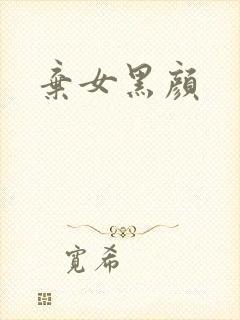 棄女黑顏
寬希